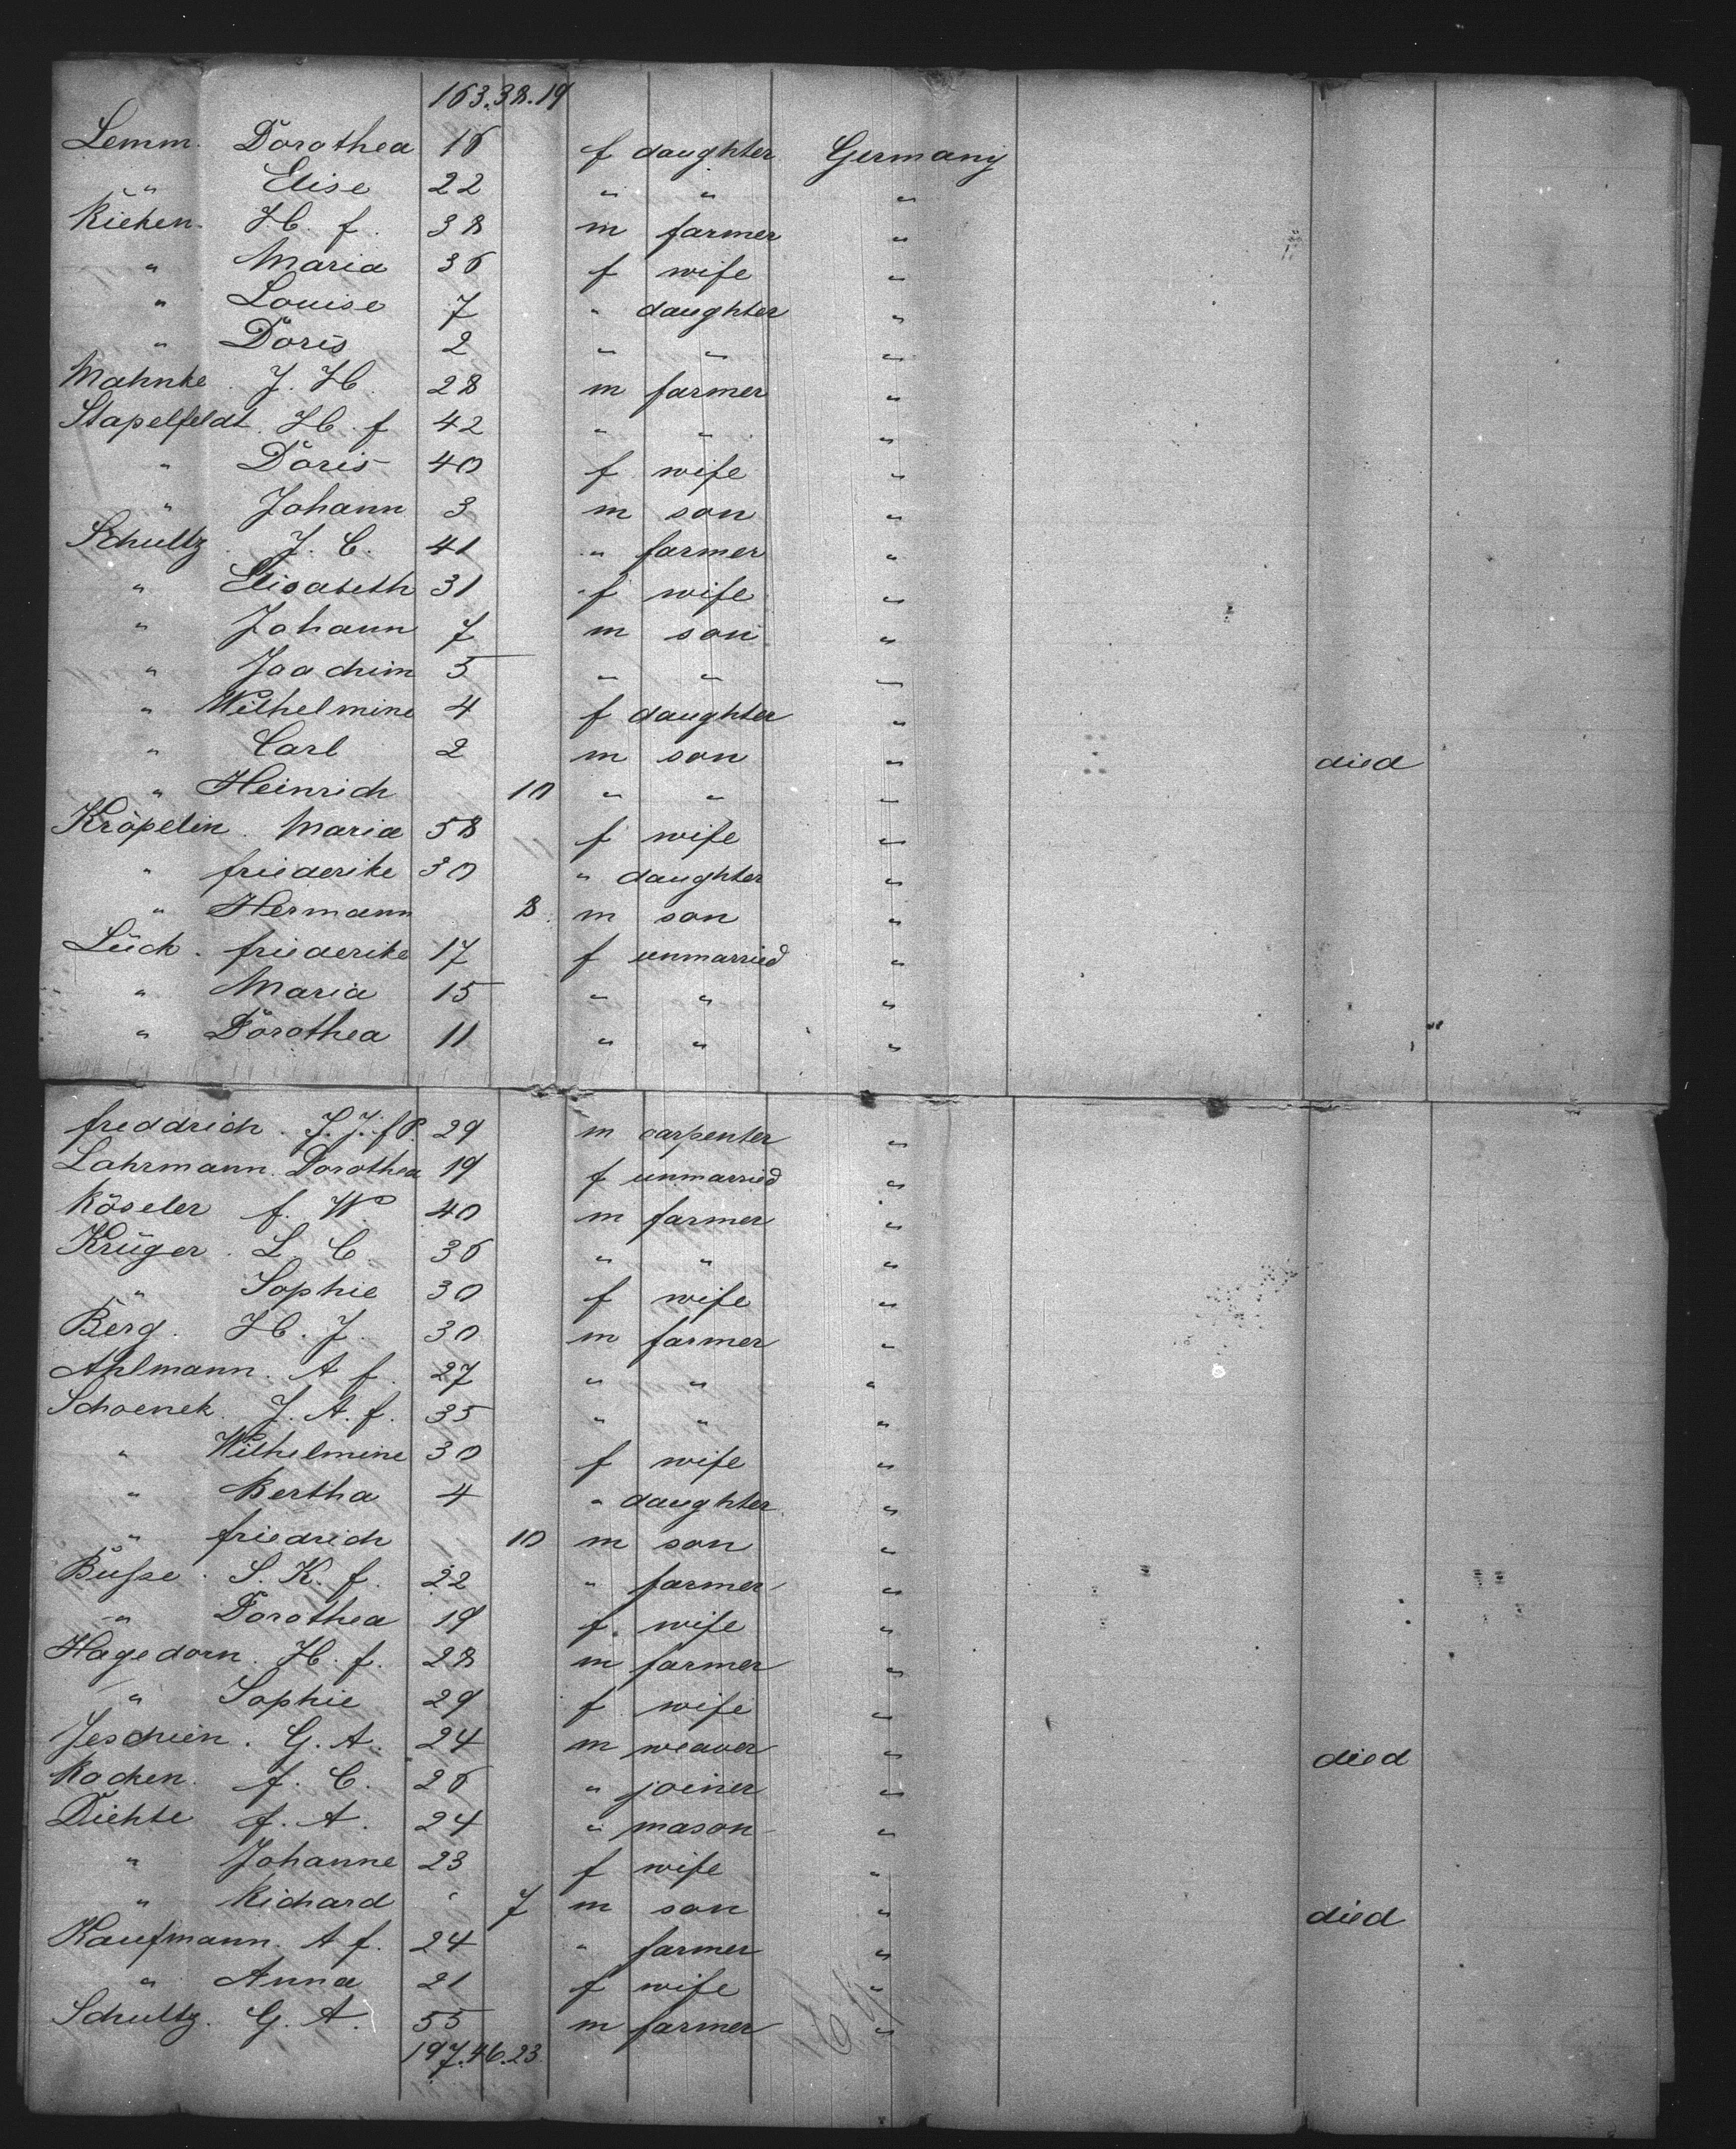 163. 38. 19
Lemm. Dorothea 16 f daughter Germany
" Elise 22 " " "
Rieken. H. f. 38 m farmer "
" Maria 36 f wife "
" Louise 7 " daughter "
" Doris 2 " " "
Mahnke. J. H. 28 m farmer "
Stapelfeldt. H. f 42 " " "
" Doris 40 f wife "
" Johann 3 m son "
Schultz. J. C. 41 " farmer "
" Elisabeth 31 f wife "
" Johann 7 m son "
" Joachim 5 " " "
" Wilhelmine 4 f daughter "
" Carl 2 m son " died
" Heinrich 10 " " "
Kröpelin. Maria 58 f wife "
" friederike 30 " daughter "
" Hermann 8 m son "
Lück. friederike 17 f unmarried "
" Maria 15 " " "
" Dorothea 11 " " "
freddrich. J. J. f P. 29 m carpenter "
Lahrmann. Dorothea 19 f unmarried "
Röseler f. W 40 m farmer "
Krüger. L. C. 36 " " "
" Sophie 30 f wife "
Berg. H. J. 30 m farmer "
Ahlmann. A f. 27 " " "
Schoenek. J. A. f. 35 " " "
" Wilhelmine 30 f wife "
" Bertha 4 " daughter "
" friedrich 10 m son "
Bußse. S. K. f. 22 " farmer "
" Dorothea 19 f. wife "
Hagedorn. H. f. 28 m farmer "
" Sophie 29 f wife "
Jeschien. G. A. 24 m weaver " died
Rochen. f. C. 26 " joiner "
Diehte f. A. 24 " mason "
" Johanne 23 f wife "
" Richard 7 m son " died
Kaufmann. A f. 24 " farmer "
" Anna 21 f wife "
Schultz. G. A. 55 m farmer "
197. 46. 23